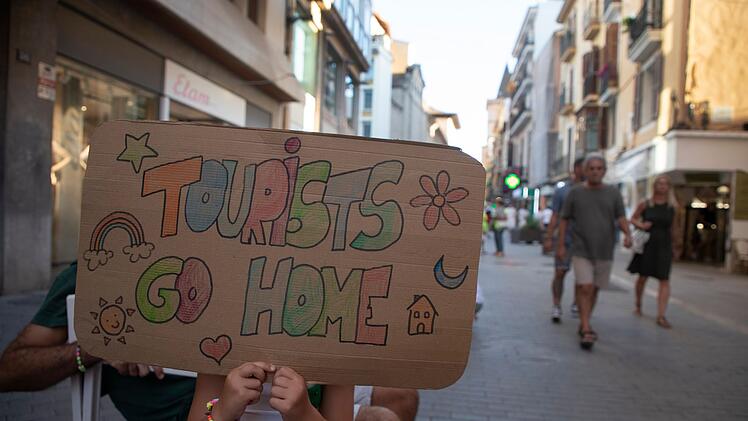 Etam
TOURISTS
GO HOME